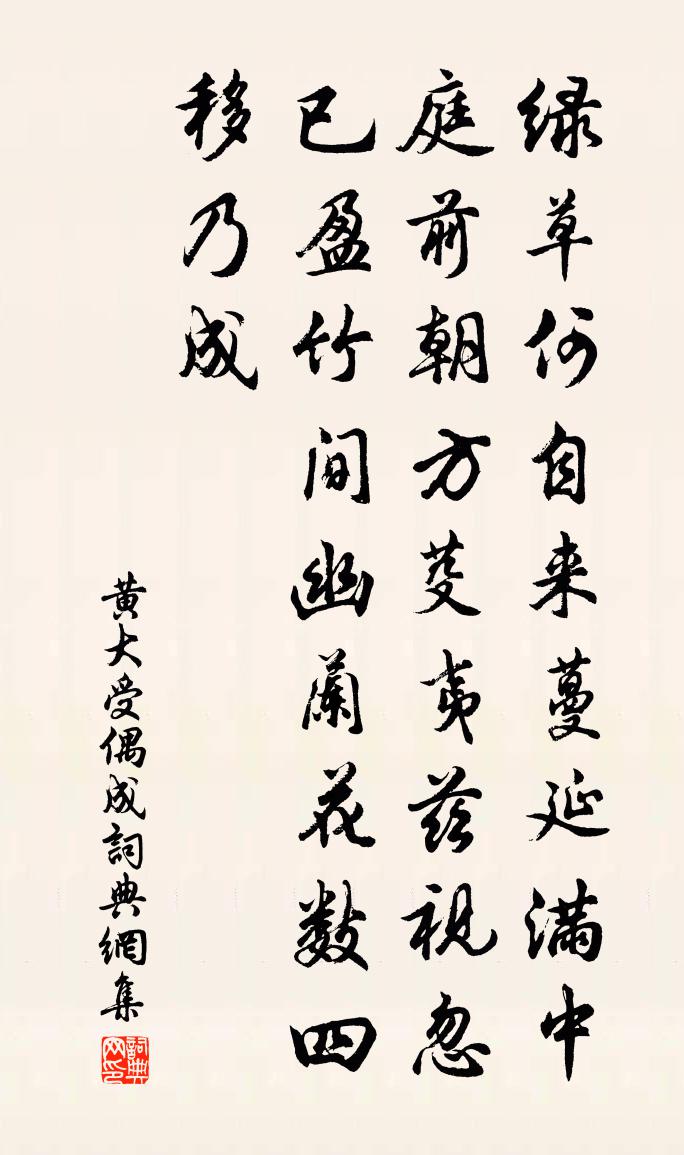 绿草何自来蔓延满中
庭前朝方芟夷兹視忽
已盈竹间幽蘭花数四
移乃成
黄大受偶成詞典網集
詞典网印